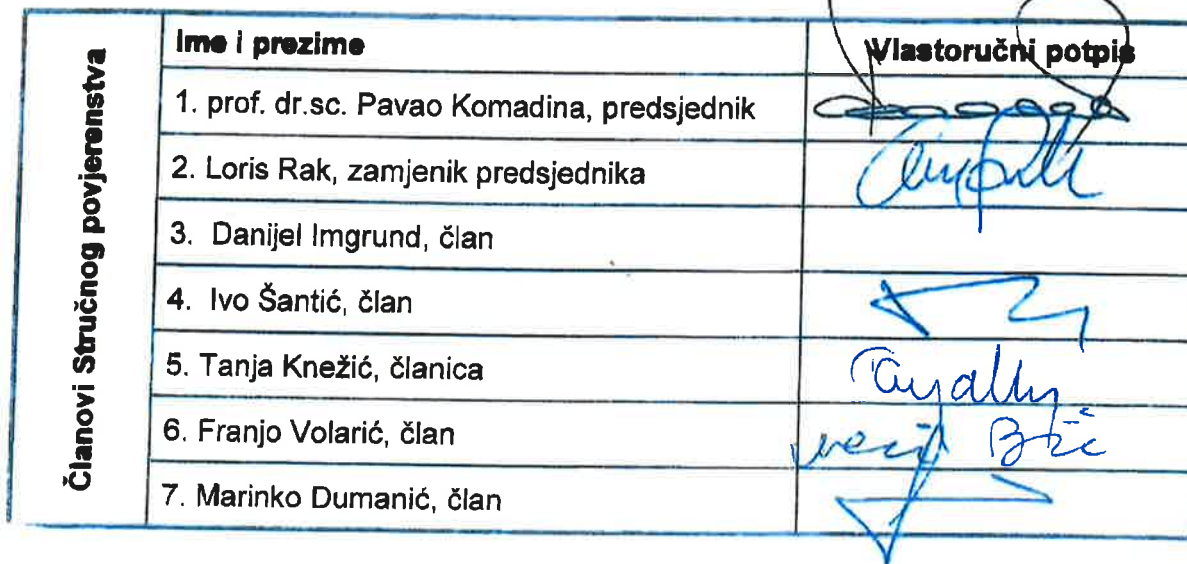 Članovi Stručnog povjerenstva
Ime i prezime
Vlastoručni potpis
1. prof. dr.sc. Pavao Komadina, predsjednik
2. Loris Rak, zamjenik predsjednika
3. Danijel Imgrund, član
4. Ivo Šantić, član
5. Tanja Knežić, članica
6. Franjo Volarić, član
7. Marinko Dumanić, član